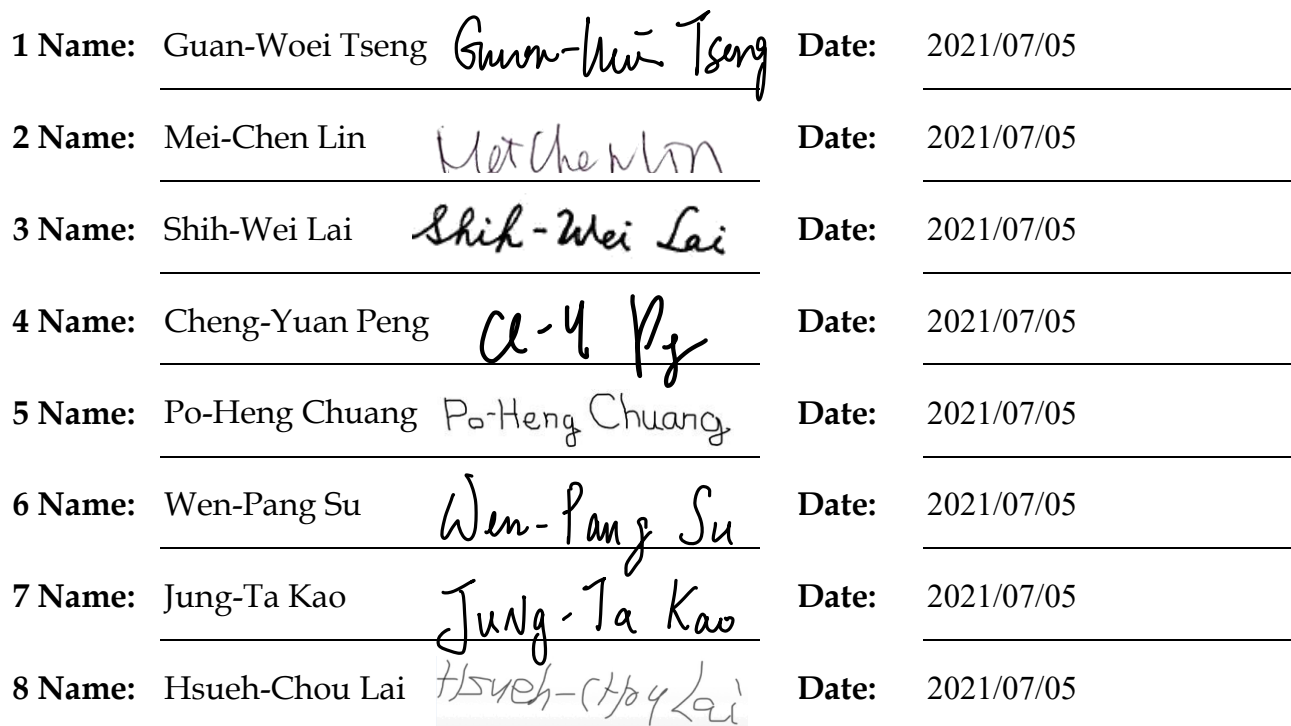 1 Name: Guan-Woei Tseng Tseng Date: 2021/07/05
2 Name: Mei-Chen Lin Date: 2021/07/05
3 Name: Shih-Wei Lai Shih-Wei Lai Date: 2021/07/05
4 Name: Cheng-Yuan Peng Date: 2021/07/05
5 Name: Po-Heng Chuang Po-Heng Chuang Date: 2021/07/05
6 Name: Wen-Pang Su Wen-Pang Su Date: 2021/07/05
7 Name: Jung-Ta Kao Jung-Ta Kao Date: 2021/07/05
8 Name: Hsueh-Chou Lai Lai Date: 2021/07/05